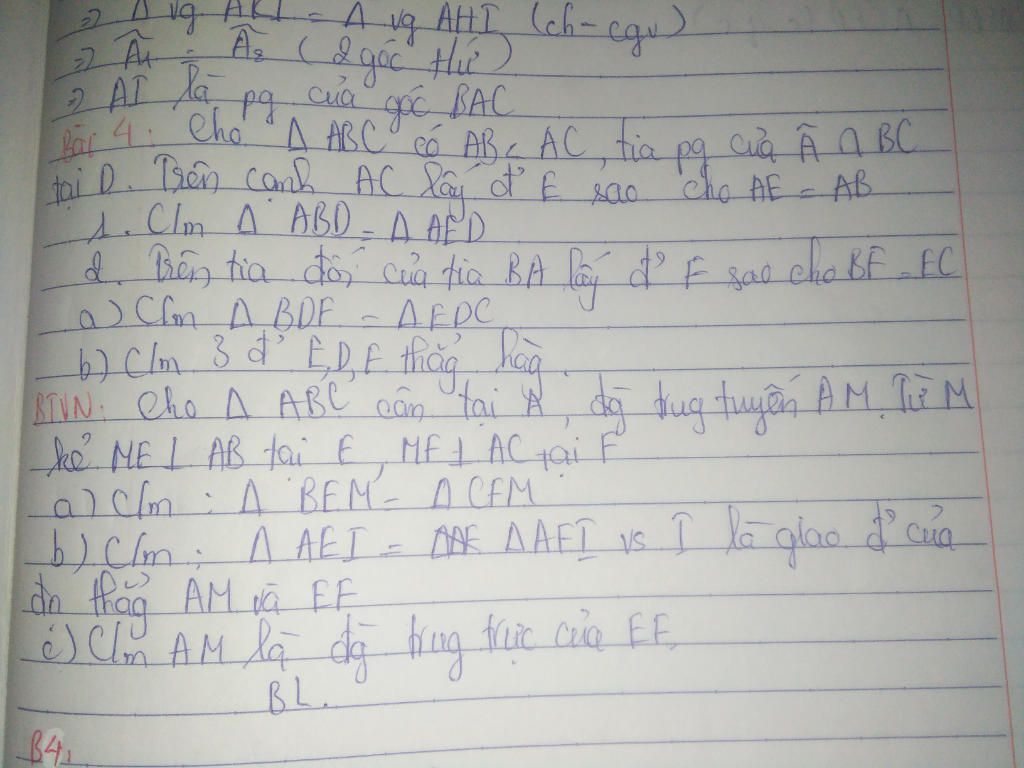 => Δ vg AKI = Δ vg AHI (ch-cgv)
=> Â₁ = Â₂ (2 góc tứ)
=> AI là pg của góc BAC
Bài 4: Cho Δ ABC có AB < AC, tia pg của Â ∩ BC
tại D. Trên cạnh AC lấy đ' E sao cho AE = AB
1. C/m Δ ABD = Δ AED
2. Trên tia đối của tia BA lấy đ' F sao cho BF = EC
a) C/m Δ BDF = Δ EDC
b) C/m 3 đ' E, D, F thẳg hàg.
BTVN: Cho Δ ABC cân tại A, đg trug tuyến AM. Từ M
kẻ ME ⊥ AB tại E, MF ⊥ AC tại F
a) C/m : Δ BEM = Δ CFM
b) C/m : Δ AEI = Δ AFI vs I là giao đ' của
đn thẳg AM và EF
c) C/m AM là đg trug trực của EF.
BL.
B4.